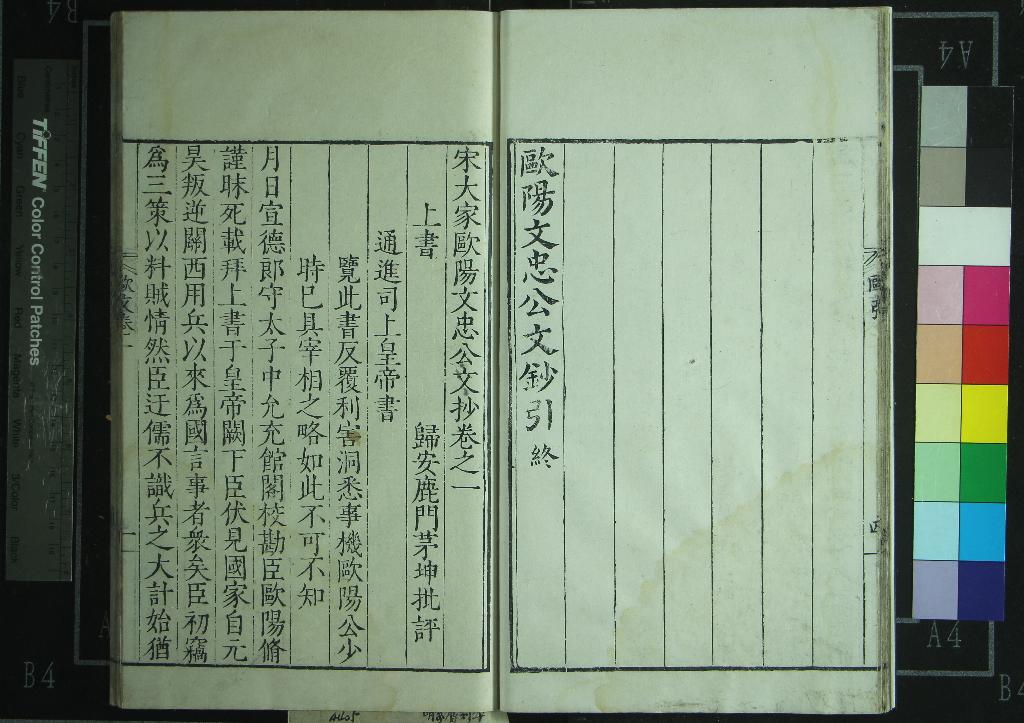 歐陽文忠公文鈔引終
宋大家歐陽文忠公文抄卷之一
歸安鹿門茅坤批評
上書
通進司上皇帝書
覽此書反覆利害洞悉事機歐陽公少
時已具宰相之略如此不可不知
月日宣德郎守太子中允充館閣校勘臣歐陽脩
謹昧死載拜上書于皇帝闕下臣伏見國家自元
昊叛逆關西用兵以來爲國言事者衆矣臣初竊
爲三策以料賊情然臣迂儒不識兵之大計始猶
歐文卷一
一
TIFFEN Color Control Patches
Blue
Cyan
Green
Yellow
Red
Magenta
White
3/Color
Black
B4
A4
A4
B4